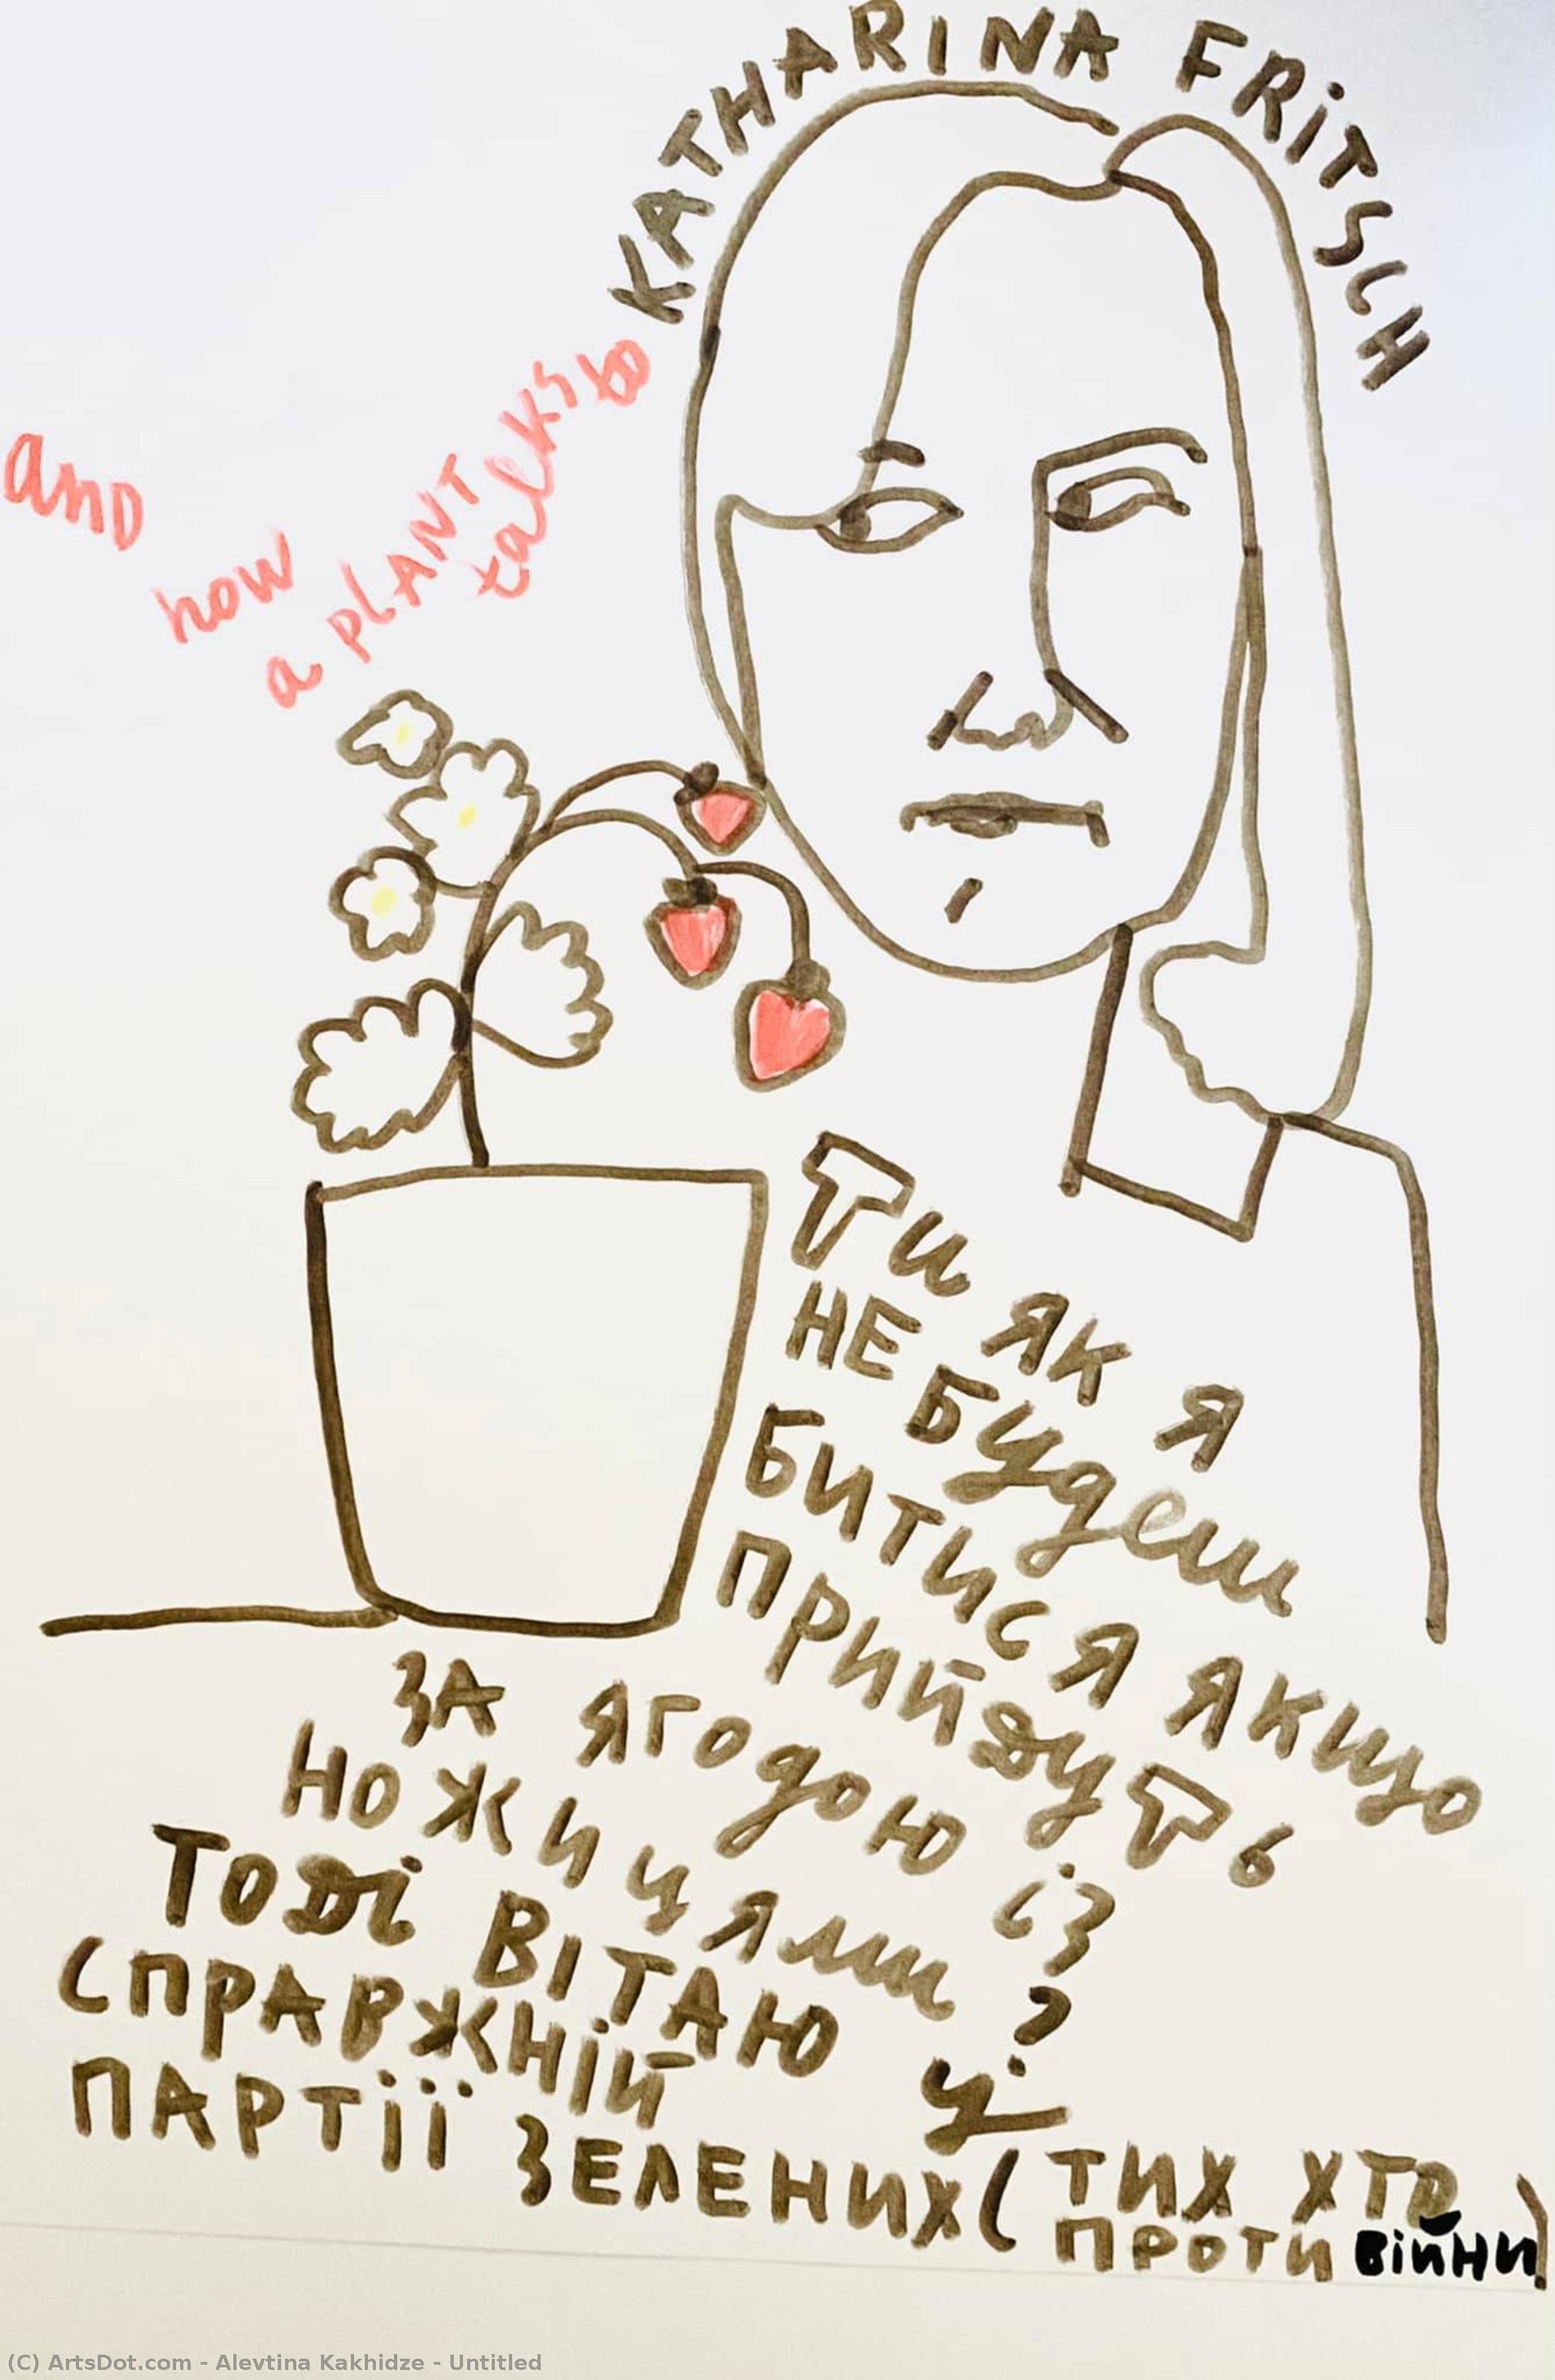 KATHARINA FRiTSCH
and
how
a PLANT
talks to
Ти ЯК Я
НЕ БУдеш
БИТИСЯ ЯКЩО
ПРИЙДУТЬ
ЗА ЯГОДОЮ із
НОЖИЦЯМИ ?
ТОДІ ВІТАЮ
У
СПРАВЖНІЙ
ПАРТІЇ ЗЕЛЕНИХ ( ТИХ ХТО
ПРОТИ ВіЙНИ )
(C) ArtsDot.com - Alevtina Kakhidze - Untitled